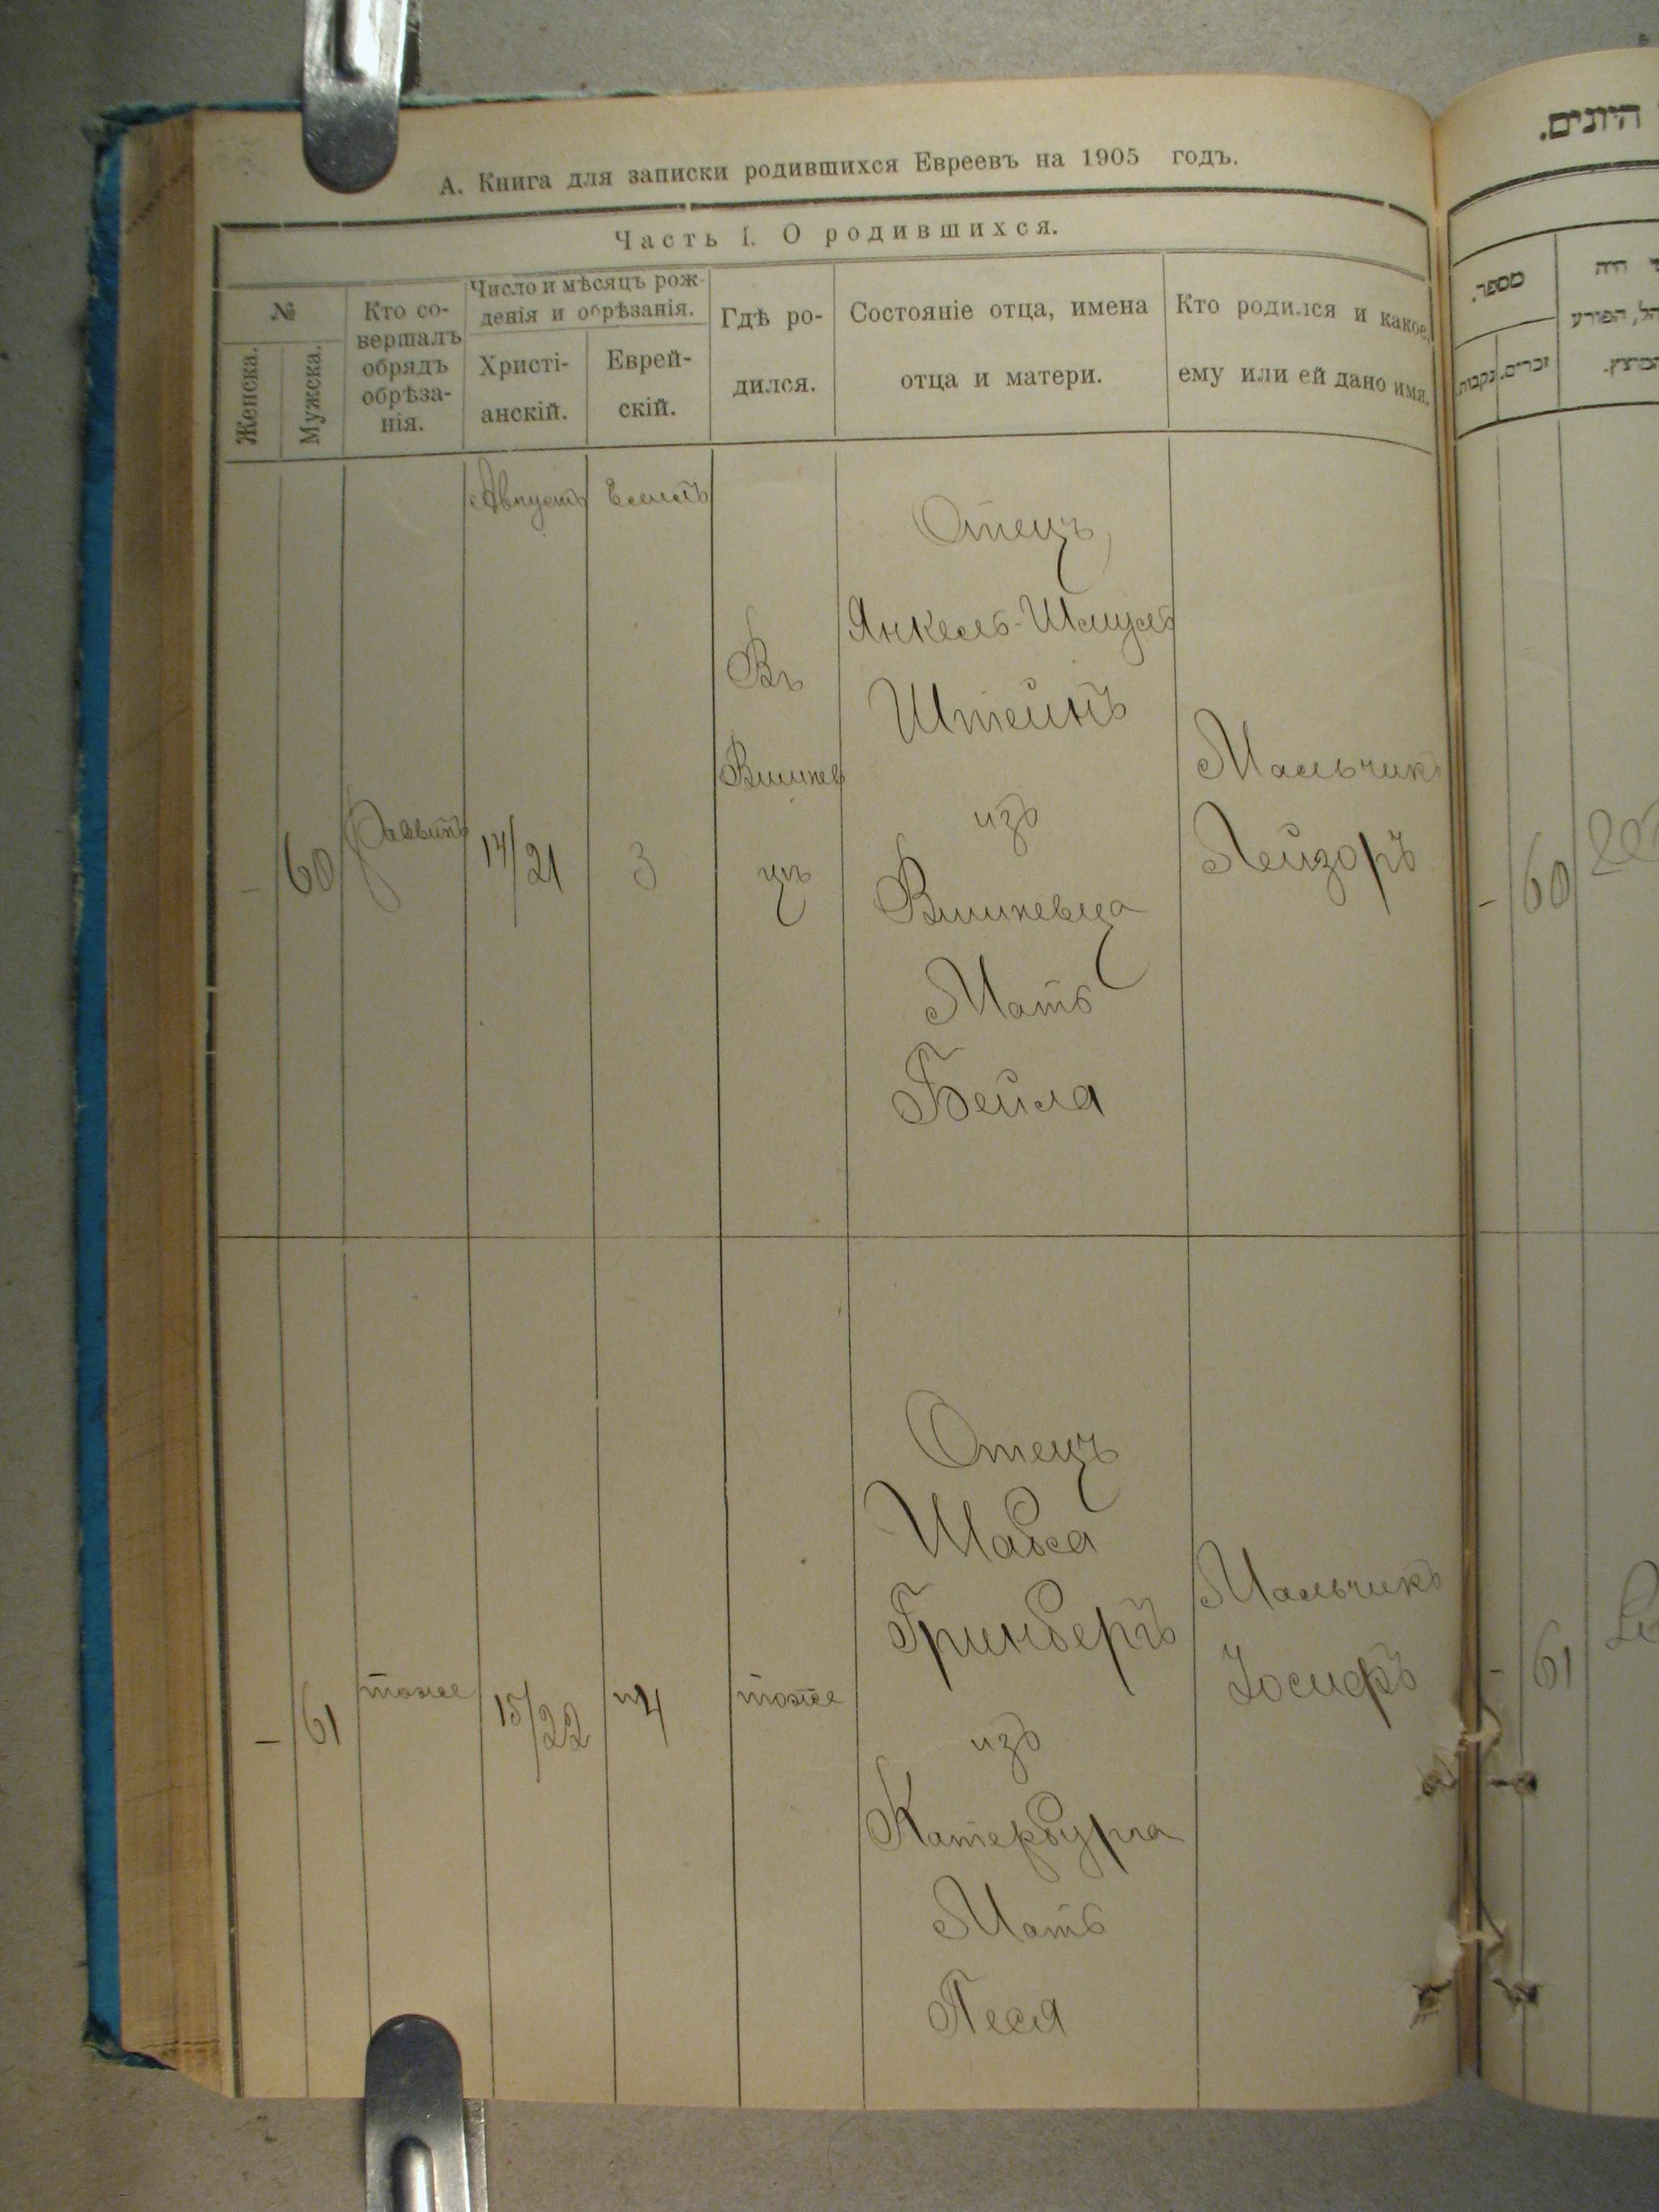 А. Книга для записки родившихся Евреевъ на 1905 годъ.
Часть I. О родившихся.
№
Женска.
Мужска.
Кто со-
вершалъ
обрядъ
обрѣза-
нія.
Число и мѣсяцъ рож-
денія и обрѣзанія.
Христі-
анскій.
Еврей-
скій.
Гдѣ ро-
дился.
Состояніе отца, имена
отца и матери.
Кто родился и какое,
ему или ей дано имя.
Августъ
Отецъ
Янкель-Шмуль
Штейнъ
изъ
Вишневца
Мать
Бейла
–
60
Раввинъ
14/21
3
Въ
Вишнев
цѣ
Мальчикъ
Лейзоръ
Отецъ
Гринбергъ
изъ
Катербурга
Мать
Песя
–
61
тоже
15/22
4
тоже
Мальчикъ
Іосифъ
היונים.
מספר.
נקבות.
זכרים.
היה
הפורע
–
60
–
61